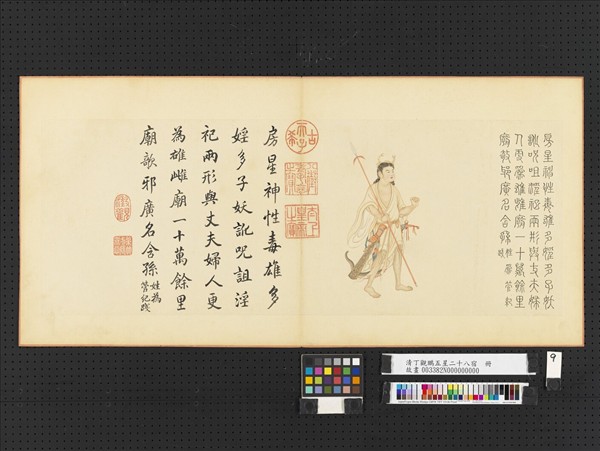 房星神性毒雄多婬多子妖
訛咒咀婬祀兩形與丈夫婦
人更為雄雌廟一十萬餘里
廟
名含孫
古希天子
太上皇帝之寶
房星神性毒雄多
婬多子妖訛咒詛淫
祀兩形與丈夫婦人更
為雄雌廟一十萬餘里
廟歌邪廣名含孫
姓為
清丁觀鵬五星二十八宿
故畫 003382N000000000
9